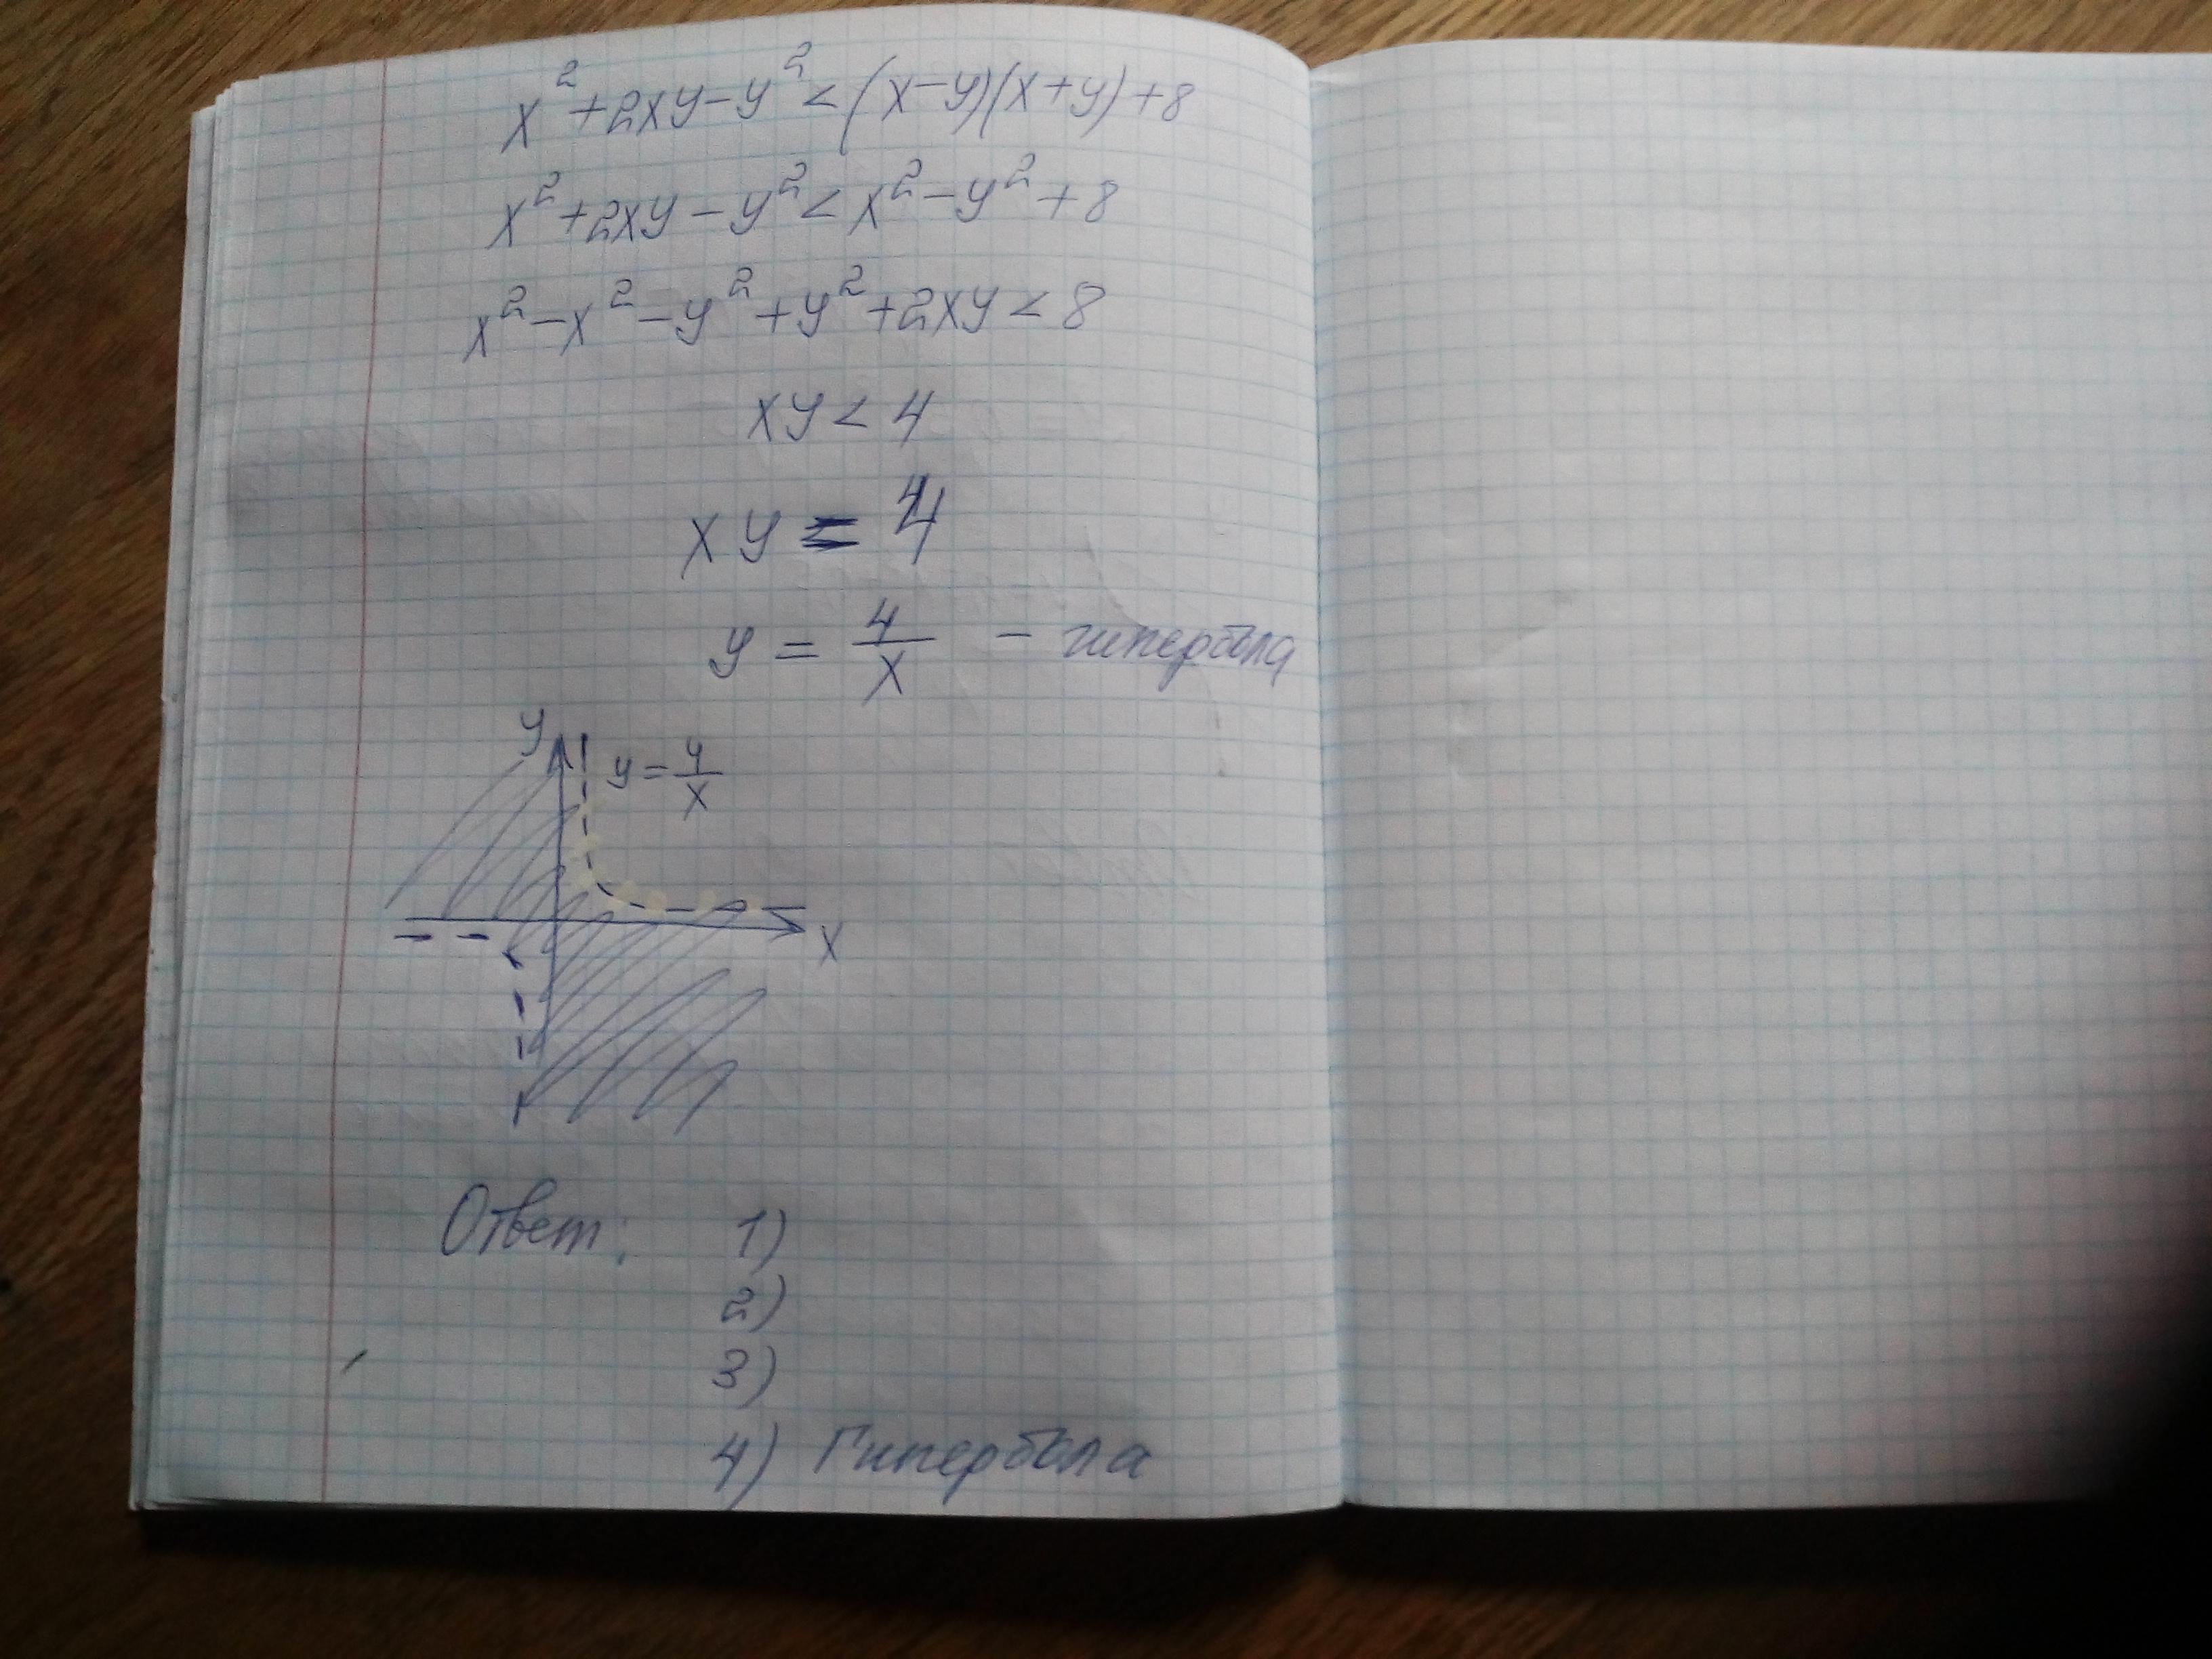 x²+2xy-y²<(x-y)(x+y)+8
x²+2xy-y²<x²-y²+8
x²-x²-y²+y²+2xy<8
xy<4
xy=4
y=4/x - гипербола
y
y=4/x
x
Ответ: 1)
2)
3)
4) Гипербола